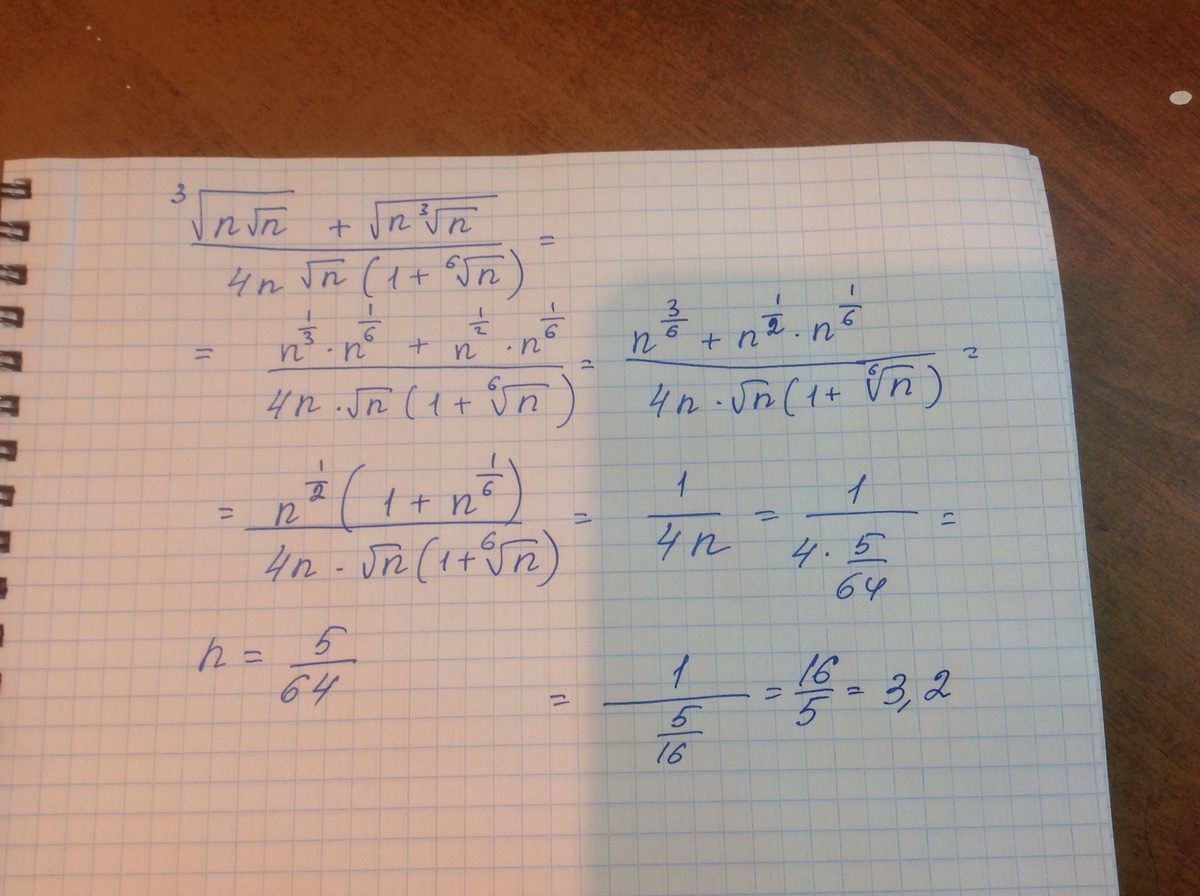 (∛(n√n) + √(n∛n)) / (4n √n (1 + ⁶√n)) =
= (n^(1/3) · n^(1/6) + n^(1/2) · n^(1/6)) / (4n · √n (1 + ⁶√n)) = (n^(3/6) + n^(1/2) · n^(1/6)) / (4n · √n (1 + ⁶√n)) =
= (n^(1/2) (1 + n^(1/6))) / (4n · √n (1 + ⁶√n)) = 1 / (4n) = 1 / (4 · 5/64) =
n = 5/64
= 1 / (5/16) = 16/5 = 3,2